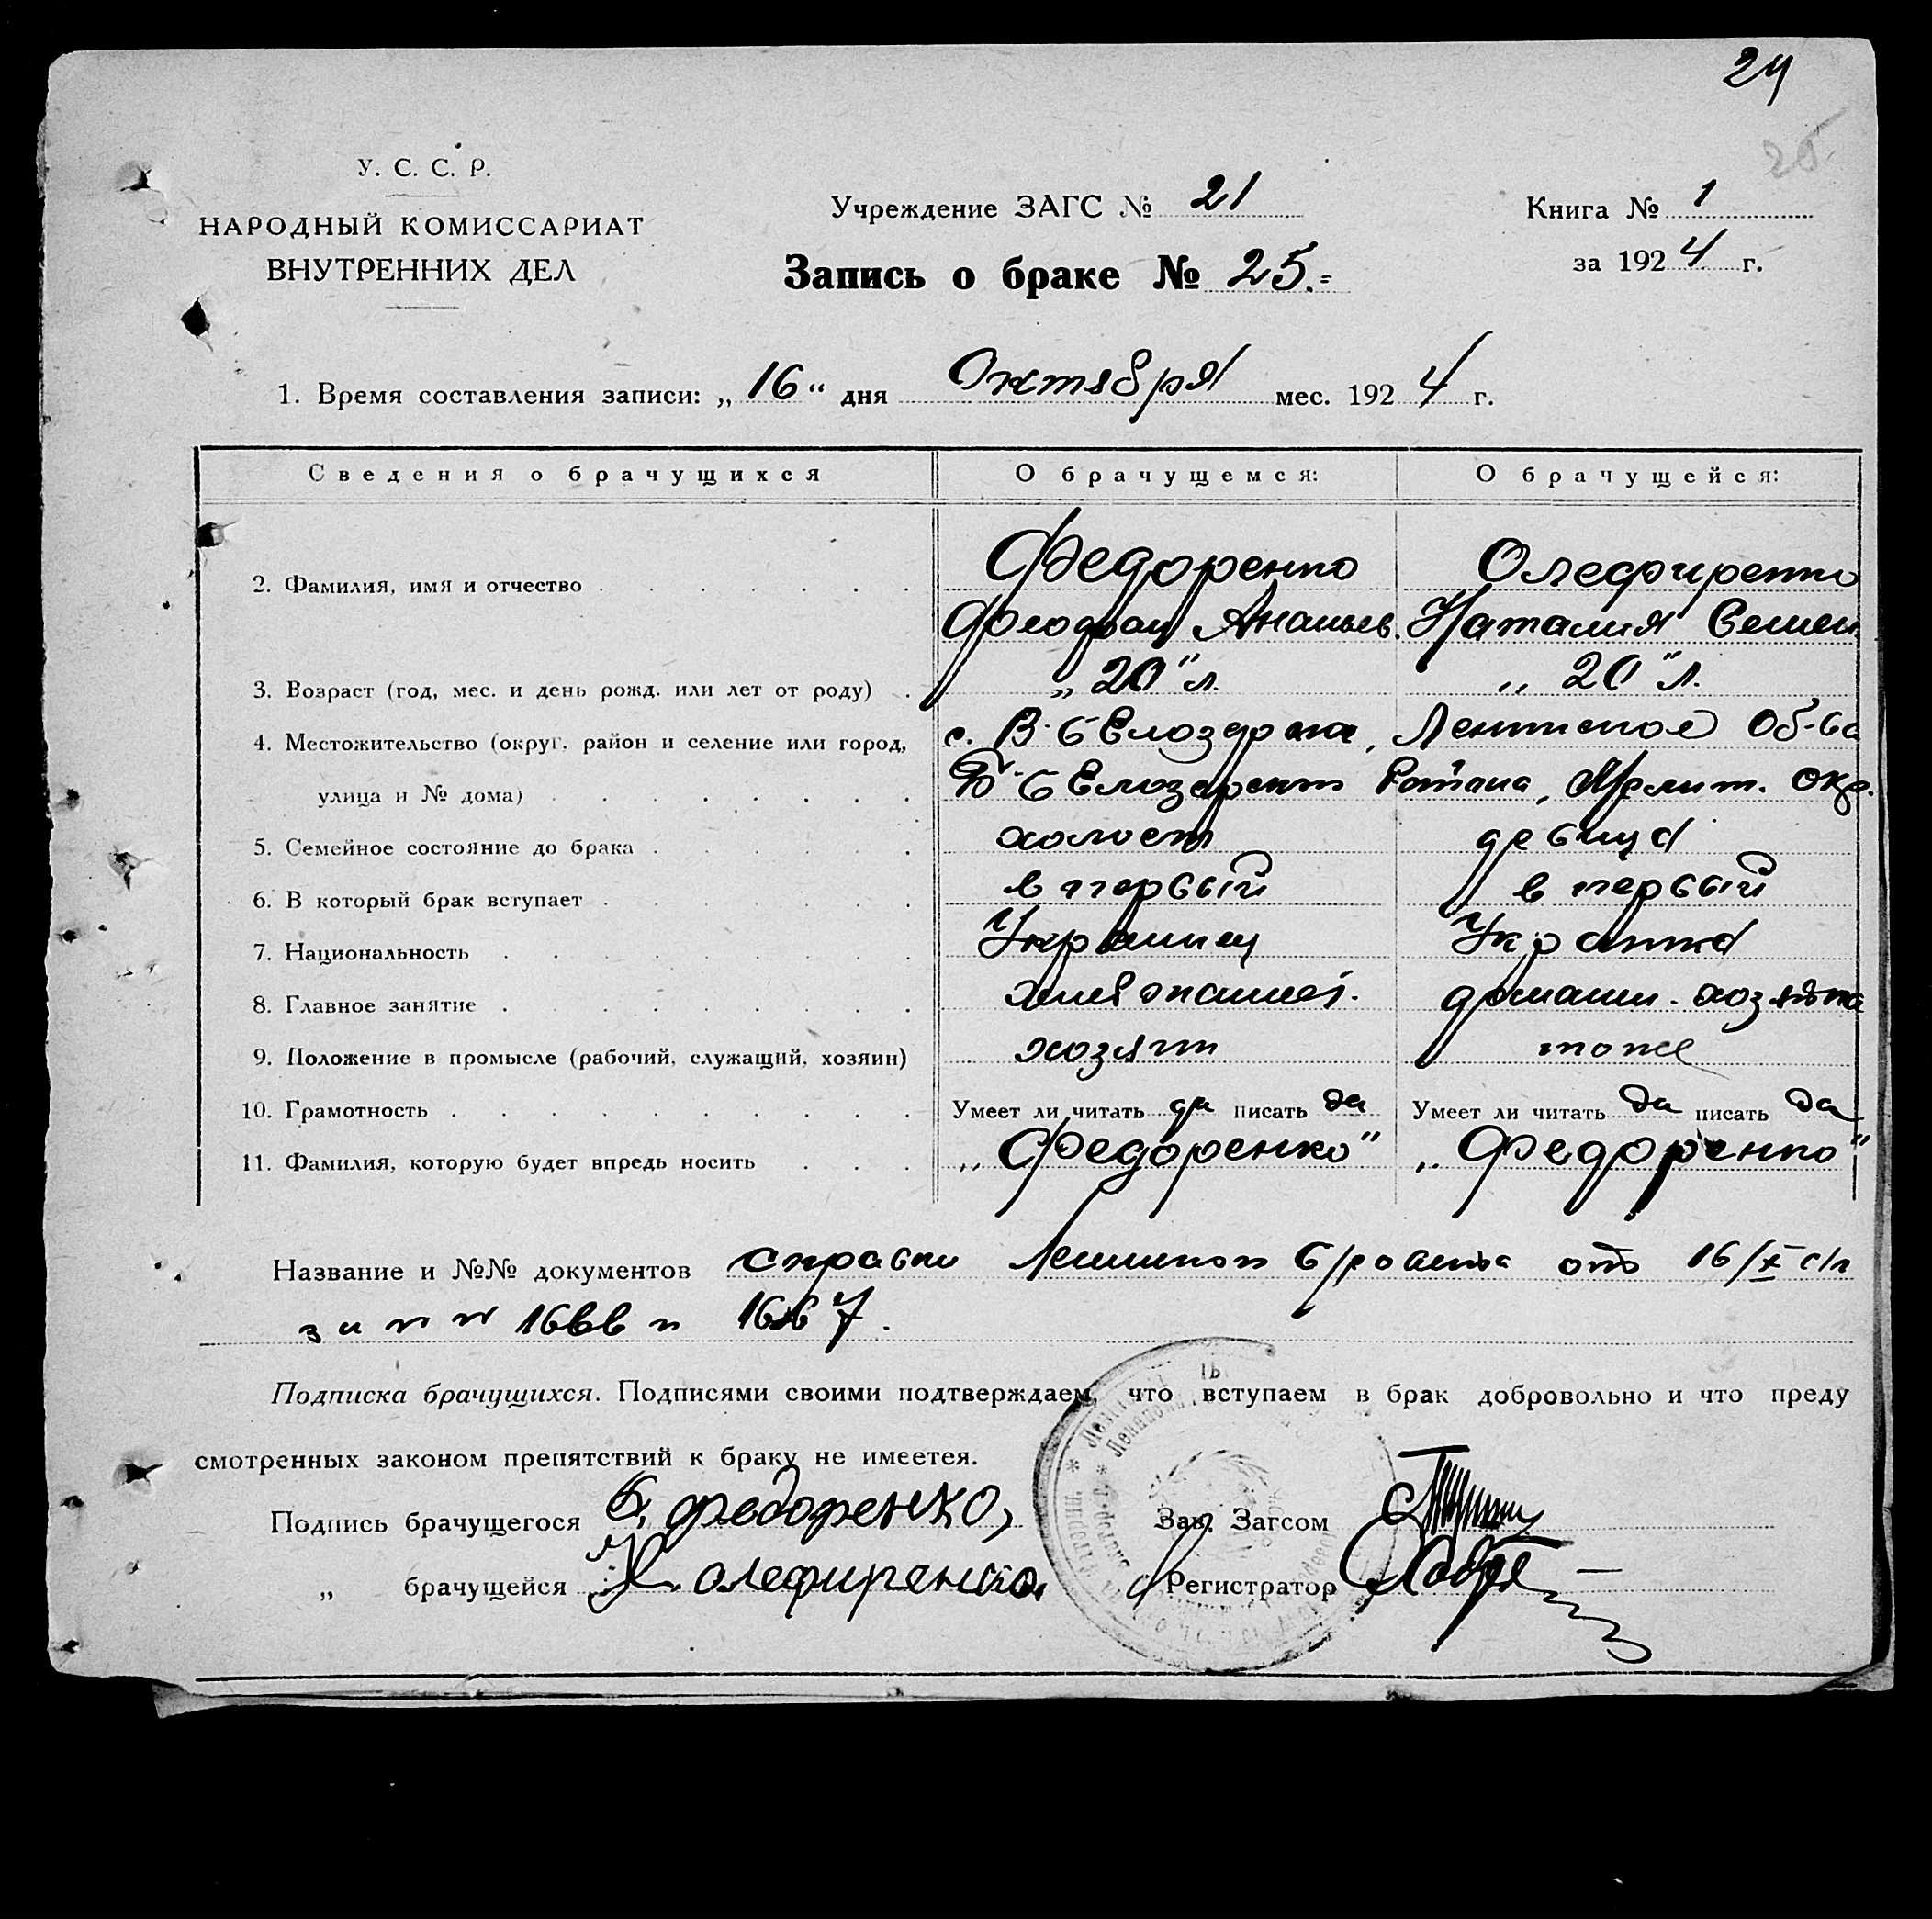 24
25
У. С. С. Р.
НАРОДНЫЙ КОМИССАРИАТ
ВНУТРЕННИХ ДЕЛ
Учреждение ЗАГС № 21
Книга № 1
за 1924 г.
Запись о браке № 25.=
1. Время составления записи: „ 16 “ дня Октября мес. 1924 г.
Сведения о брачущихся О брачущемся: О брачущейся:
2. Фамилия, имя и отчество Федоренко Олефиренко
Ананьев. Наталия Семен
3. Возраст (год, мес. и день рожд. или лет от роду) „ 20 " л. „ 20 " л.
4. Местожительство (округ, район и селение или город, с. В-б Об-ва
улица и № дома) Б-б Района, Мелит. Окр.
5. Семейное состояние до брака холост девица
6. В который брак вступает в первый в первый
7. Национальность Украинец Украинка
8. Главное занятие хлебопашес. домашн. хозяйка
9. Положение в промысле (рабочий, служащий, хозяин) хозяин тоже
10. Грамотность Умеет ли читать да писать да Умеет ли читать да писать да
11. Фамилия, которую будет впредь носить „ Федоренко " „ Федоренко "
Название и №№ документов справки от 16/X с/г
за 1666 и 1667.
Подписка брачущихся. Подписями своими подтверждаем, что вступаем в брак добровольно и что преду
смотренных законом препятствий к браку не имеется.
Подпись брачущегося федоренко,
Зав. Загсом
„ брачущейся Н. олефиренко.
Регистратор